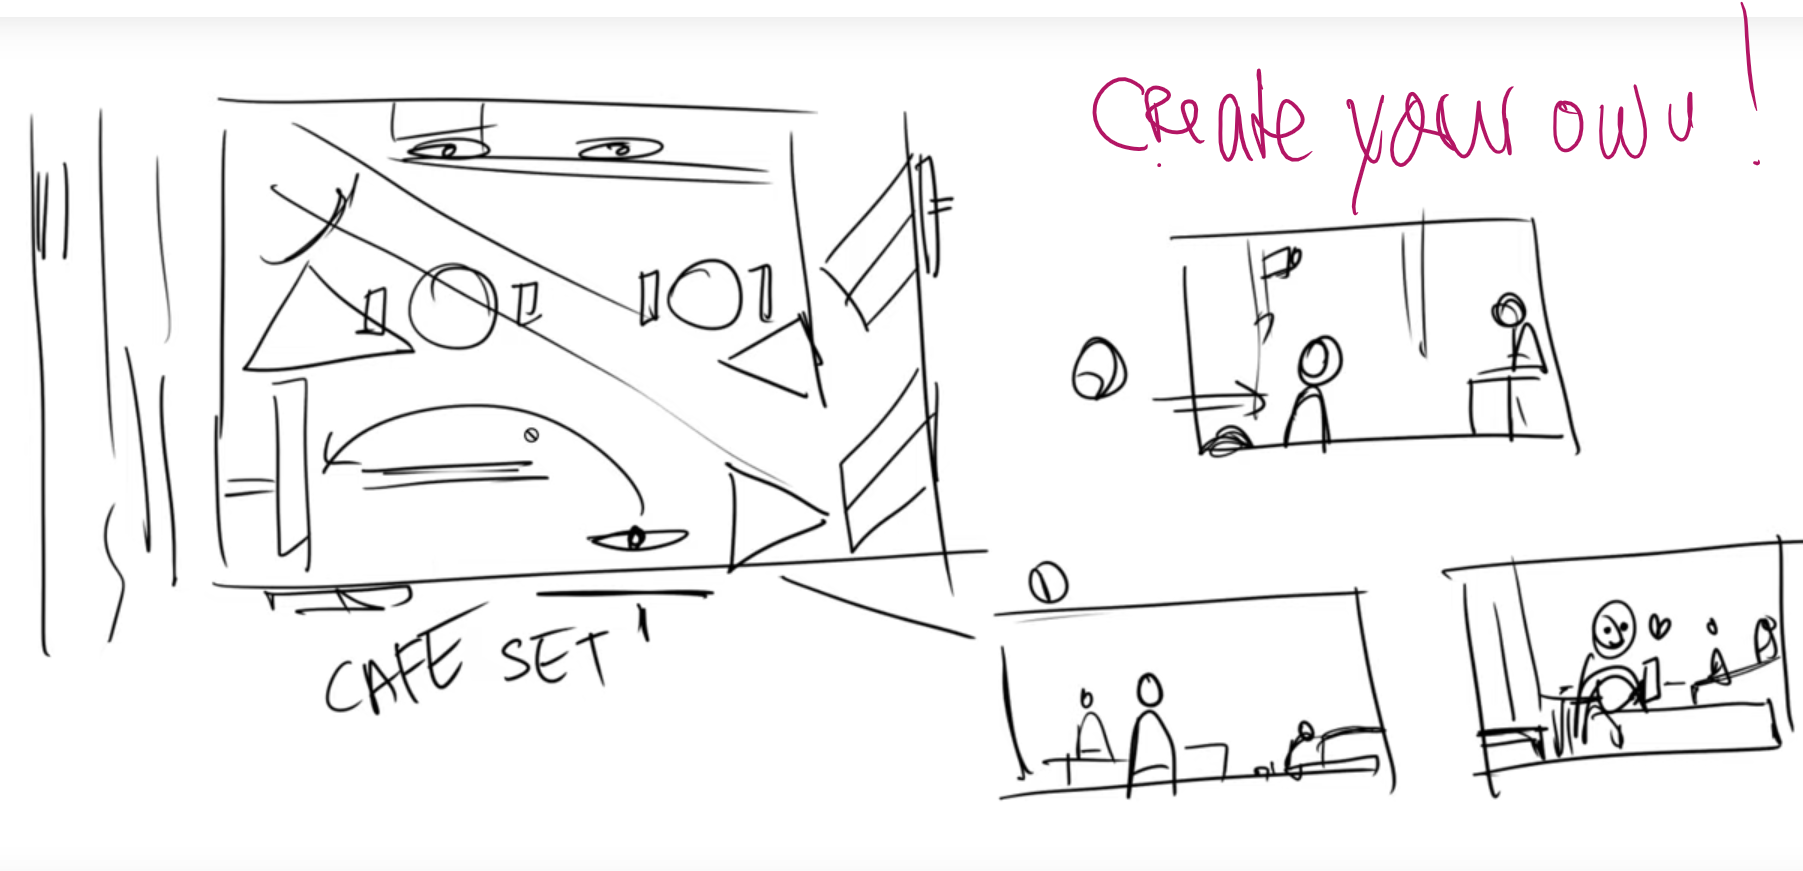 Create your own!
CAFE SET